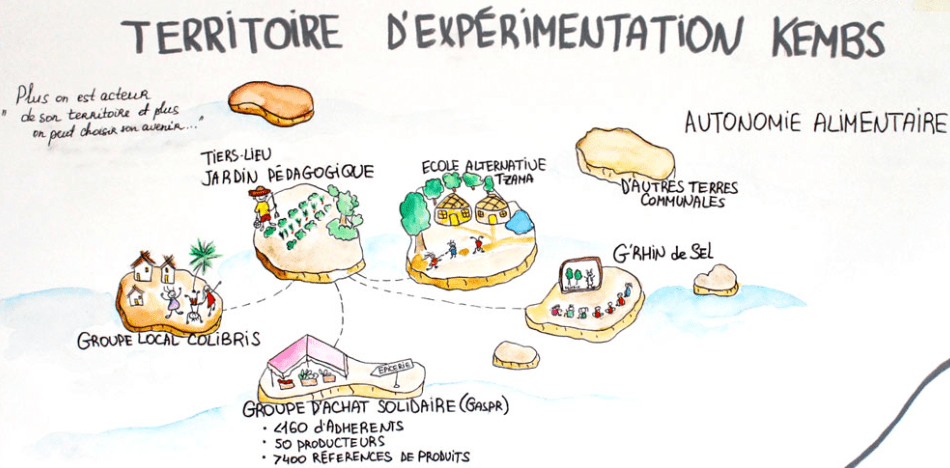 TERRITOIRE D'EXPÉRIMENTATION KEMBS
Plus on est acteur
" de son territoire et plus
on peut choisir son avenir..."
AUTONOMIE ALIMENTAIRE
TIERS-LIEU
JARDIN PÉDAGOGIQUE
ECOLE ALTERNATIVE
TZAMA
D'AUTRES TERRES
COMMUNALES
G'RHIN de SEL
GROUPE LOCAL COLIBRIS
EPICERIE
GROUPE D'ACHAT SOLIDAIRE (GASPR)
• <160 d'ADHERENTS
• 50 PRODUCTEURS
• 7400 RÉFÉRENCES DE PRODUITS